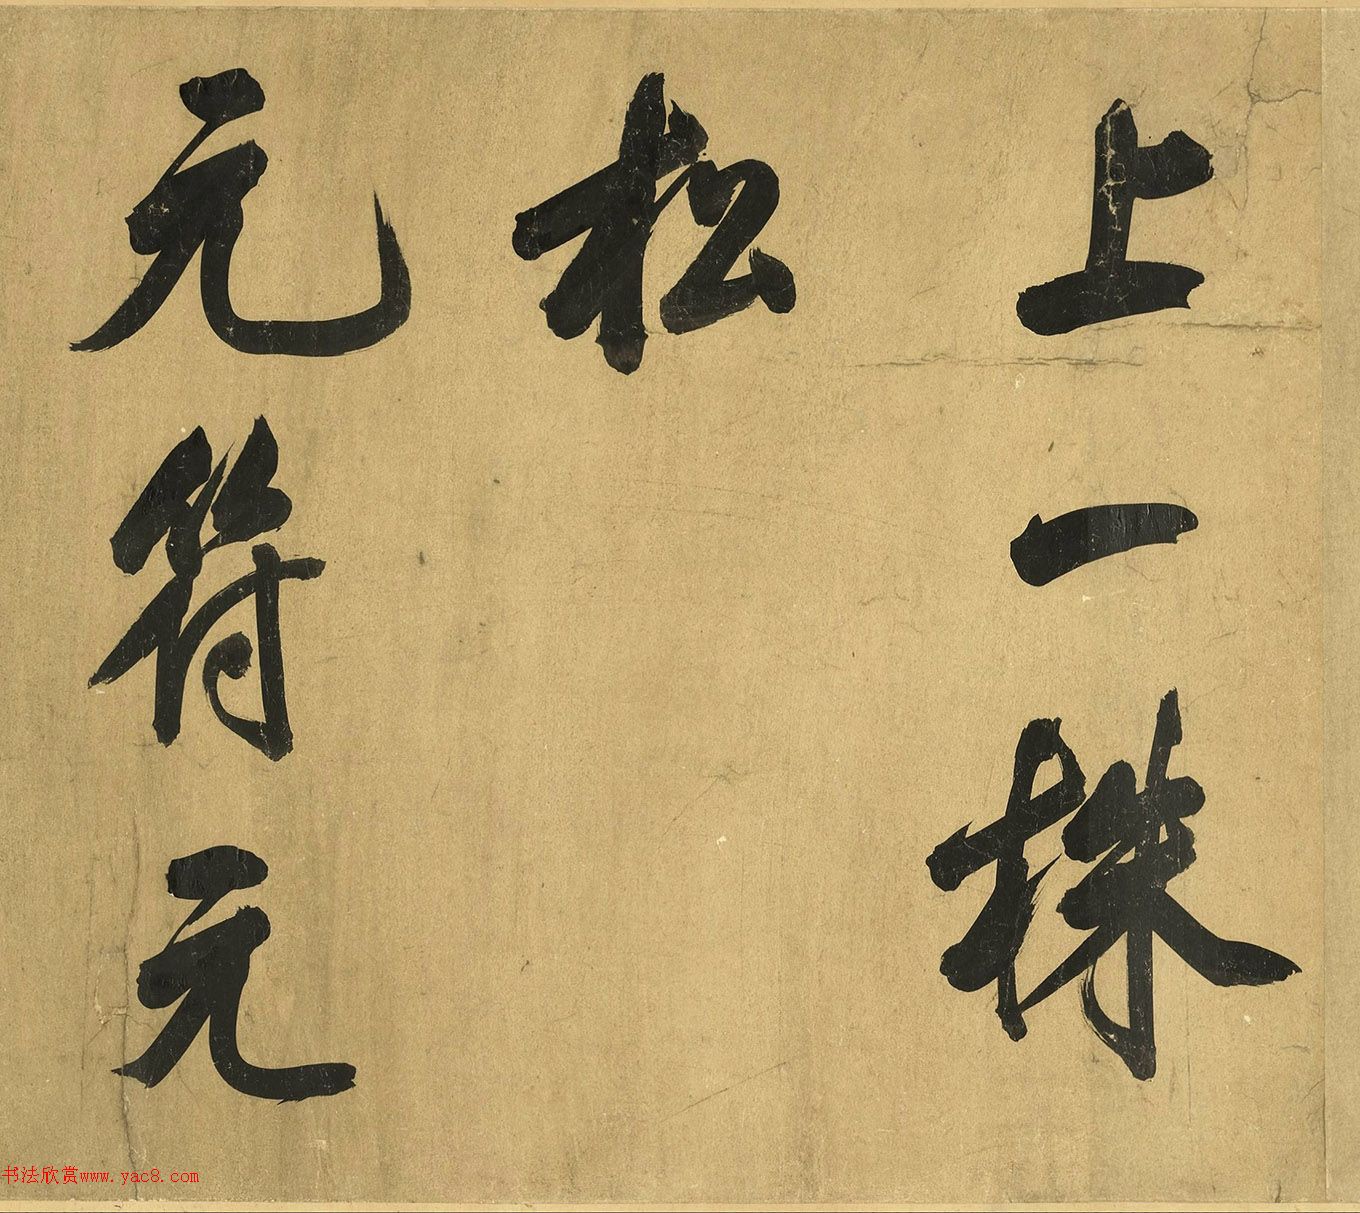 上一株
松
元符元
书法欣赏www.yac8.com